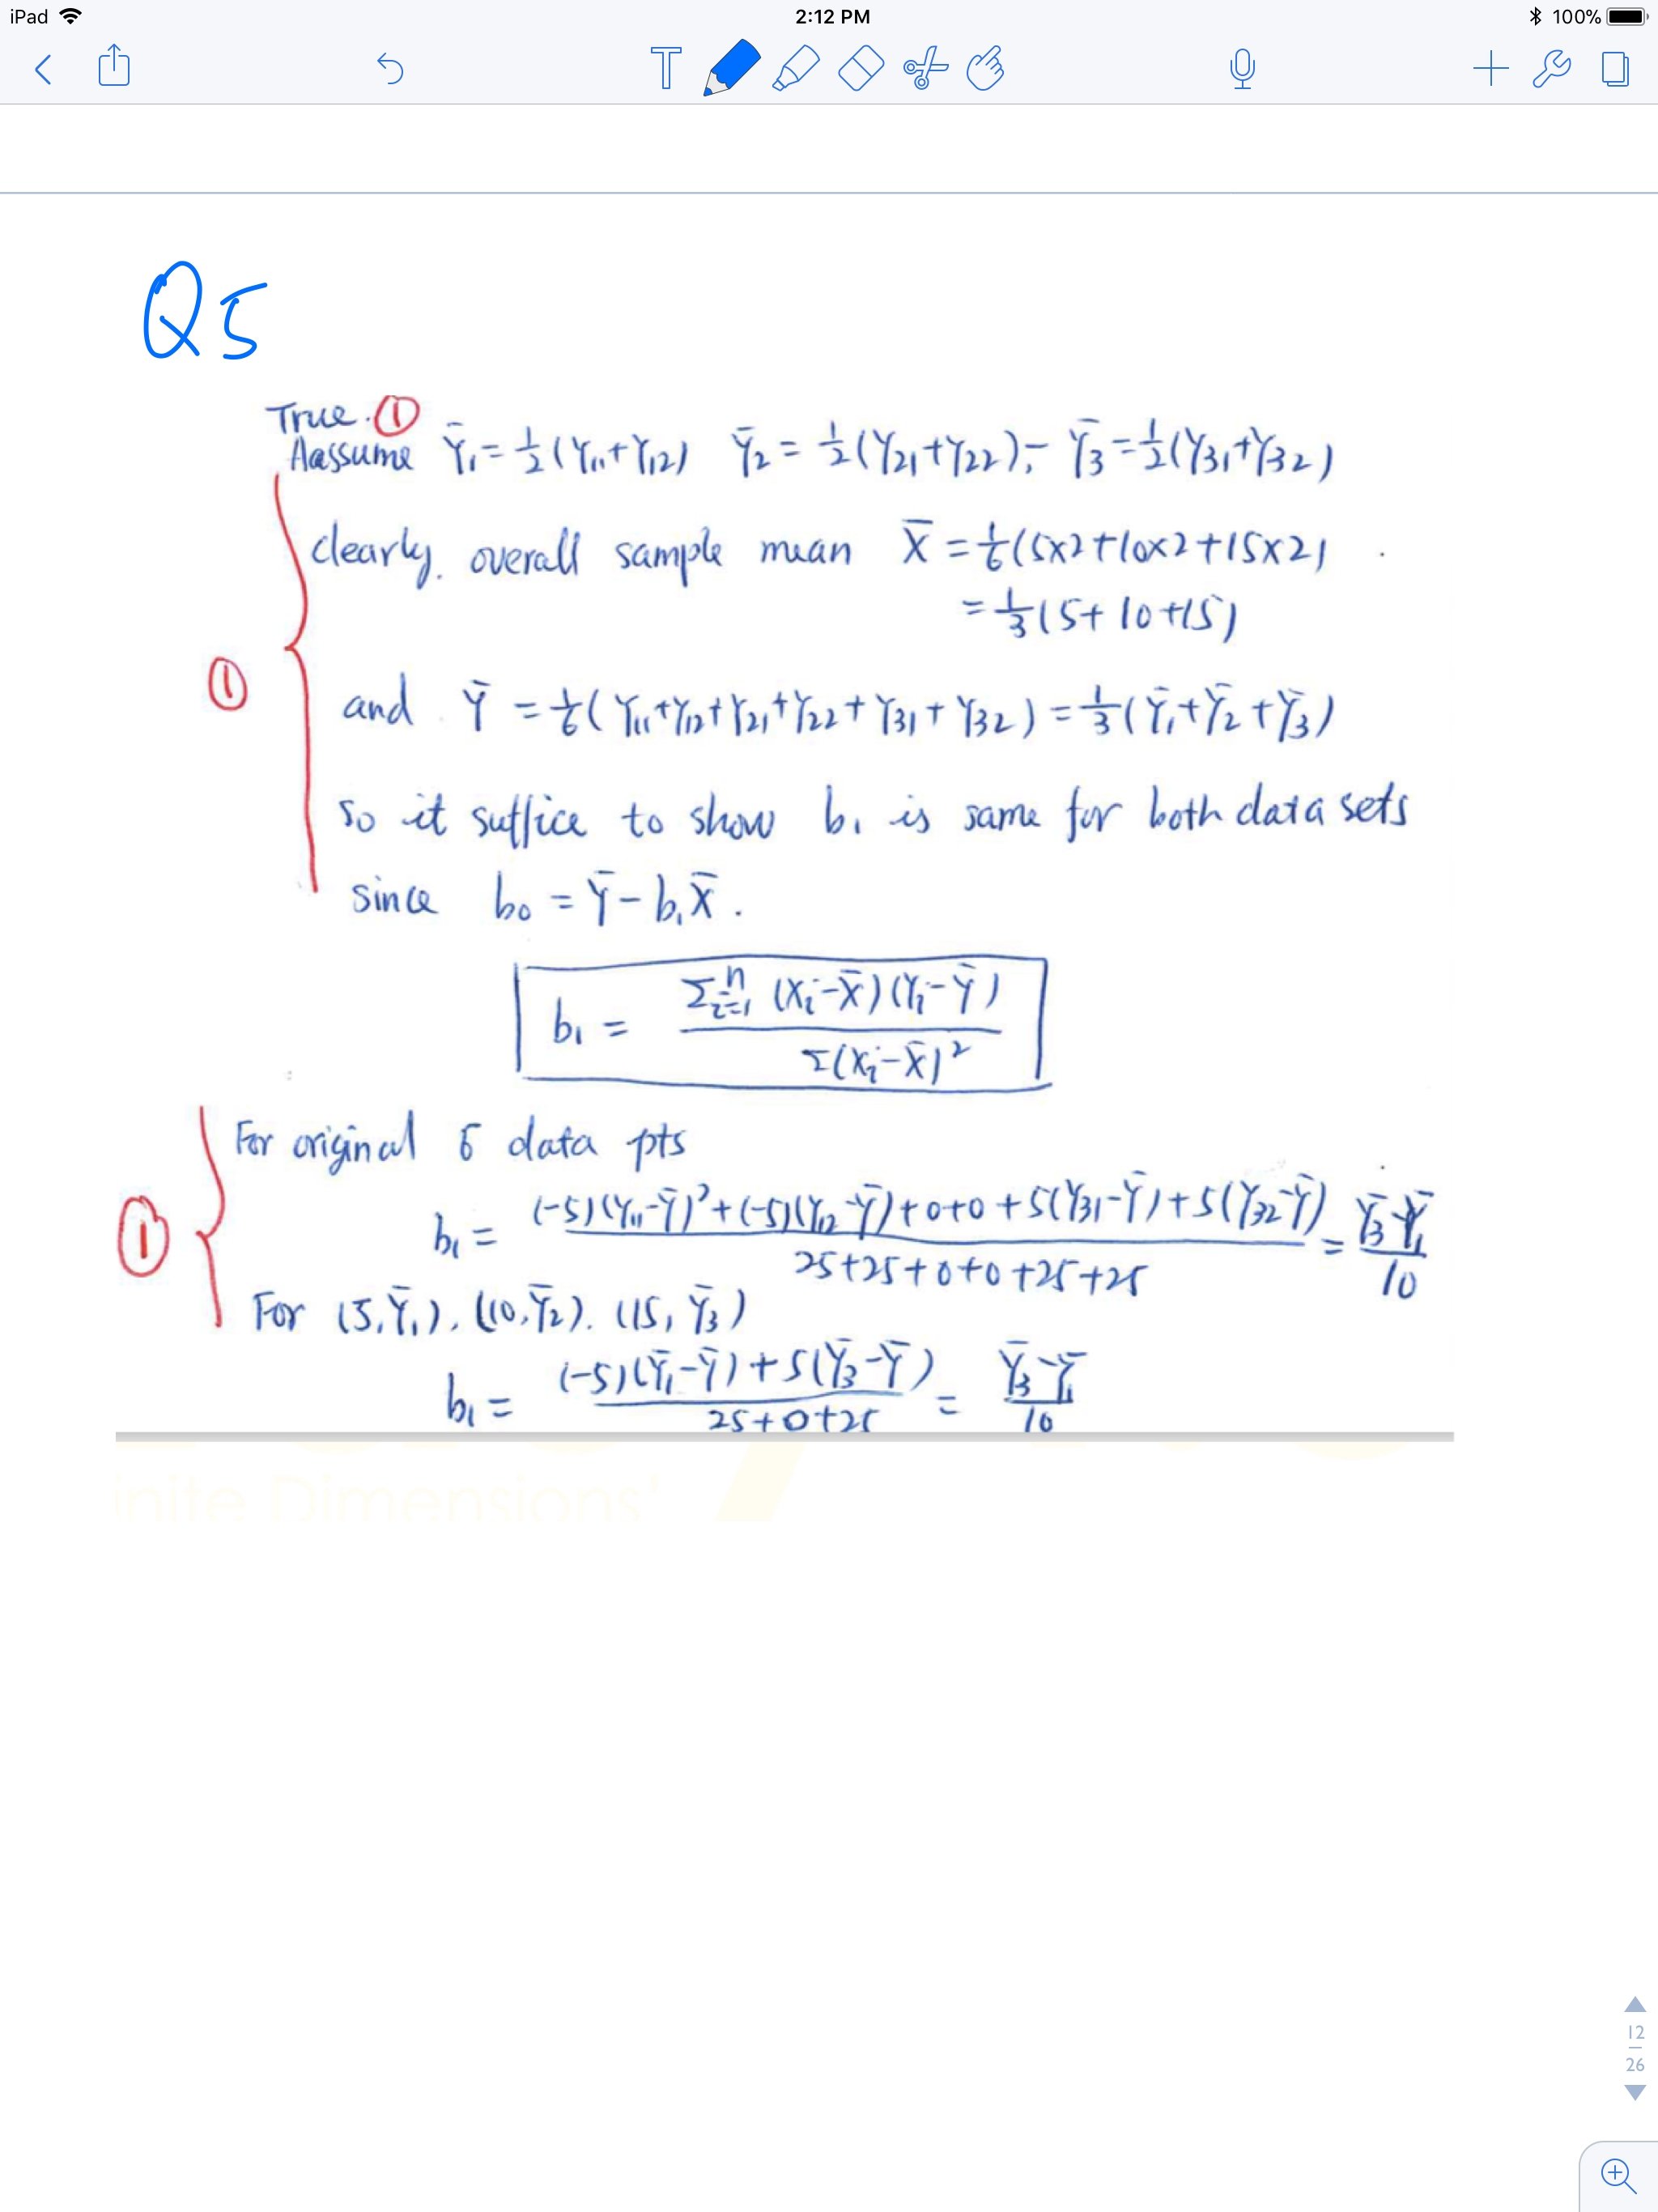 iPad
2:12 PM
100%
T
Q5
True. ①
Aassume Ȳ₁ = ½(Y₁₁+Y₁₂) Ȳ₂ = ½(Y₂₁+Y₂₂), Ȳ₃ = ½(Y₃₁+Y₃₂)
clearly, overall sample mean X̄ = 1/6(5x2+10x2+15x2)
= 1/3(5+10+15)
①
and Ȳ = 1/6(Y₁₁+Y₁₂+Y₂₁+Y₂₂+Y₃₁+Y₃₂) = 1/3(Ȳ₁+Ȳ₂+Ȳ₃)
so it suffice to show b₁ is same for both data sets
since b₀ = Ȳ - b₁X̄.
b₁ = Σⁿᵢ₌₁ (Xᵢ-X̄)(Yᵢ-Ȳ) / Σ(Xᵢ-X̄)²
For original 6 data pts
① b₁ = (-5)(Y₁₁-Ȳ)²+(-5)(Y₁₂-Ȳ)+0+0+5(Y₃₁-Ȳ)+5(Y₃₂-Ȳ) / 25+25+0+0+25+25 = Ȳ₃-Ȳ₁ / 10
For (5,Ȳ₁), (10,Ȳ₂). (15,Ȳ₃)
b₁ = (-5)(Ȳ₁-Ȳ)+5(Ȳ₃-Ȳ) / 25+0+25 = Ȳ₃-Ȳ₁ / 10
inite Dimensions
12
26